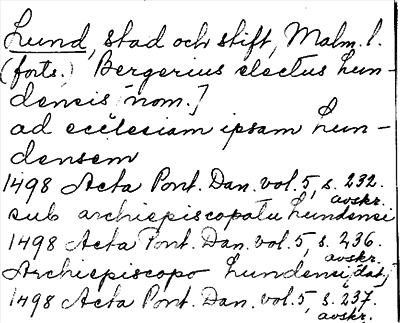 Lund, stad och stift, Malm. l.
(forts.) Bergerius electus Lun-
densis [nom.]
ad ecclesiam ipsam Lun-
densem
1498 Acta Pont. Dan. vol. 5, s. 232.
avskr.
sub archiepiscopatu Lundensi
1498 Acta Pont. Dan. vol. 5, s. 236.
avskr.
Archiepiscopo Lundensi, dat.
1498 Acta Pont. Dan. vol. 5, s. 237.
avskr.